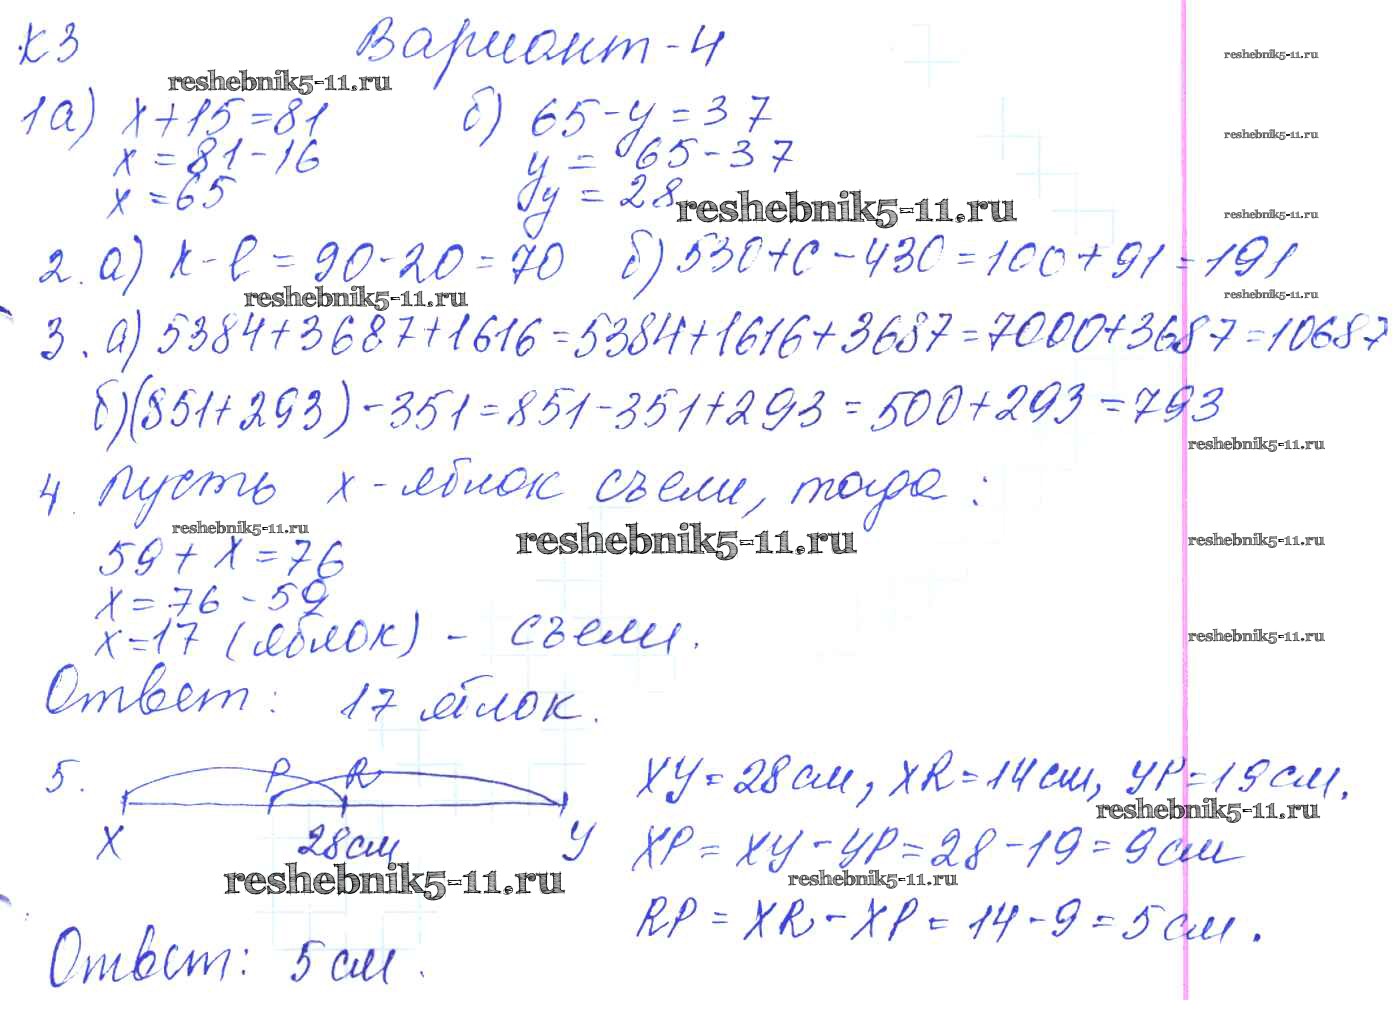 К3 Вариант-4
reshebnik5-11.ru
reshebnik5-11.ru
1а) x+15=81 б) 65-y=37
reshebnik5-11.ru
x=81-16 y=65-37
x=65 y=28
reshebnik5-11.ru
reshebnik5-11.ru
2. а) К-l=90-20=70 б) 530+c-430=100+91=191
reshebnik5-11.ru
reshebnik5-11.ru
3. а) 5384+3687+1616=5384+1616+3687=7000+3687=10687
б) (851+293)-351=851-351+293=500+293=793
reshebnik5-11.ru
4. Пусть x-яблок съели, тогда:
reshebnik5-11.ru
reshebnik5-11.ru
reshebnik5-11.ru
59+x=76
x=76-59
x=17 (яблок) - съели.
reshebnik5-11.ru
Ответ: 17 яблок.
5. P R XY=28см, XR=14см, YP=19см.
reshebnik5-11.ru
X 28см Y XP=XY-YP=28-19=9см
reshebnik5-11.ru
reshebnik5-11.ru
RP=XR-XP=14-9=5см.
Ответ: 5см.